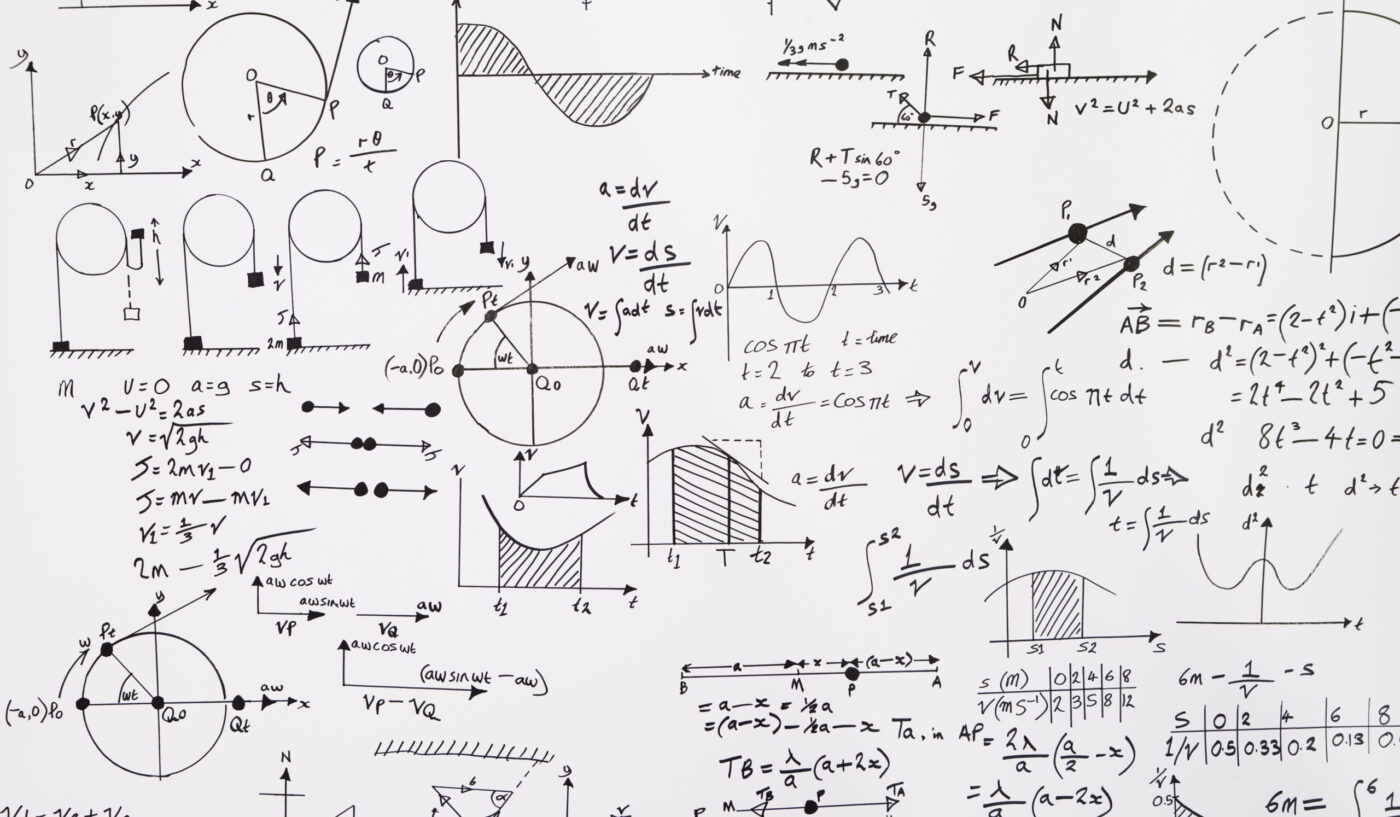 x
y
P(x,y)
r
y
O
x
x
O
θ
r
P
Q
O
θ
P
Q
P = rθ/t
time
1/3g ms⁻²
R
T
R
60°
F
5g
R + T sin 60°
— 5g = 0
N
R
F
N
V² = U² + 2as
O
r
h
v
m
2m
a = dv/dt
V = ds/dt
V = ∫adt s = ∫vdt
y
aw
Pt
wt
(-a,0)P₀
Q₀
aw
Qt
x
V
O
1
2
3
t
cos πt t = time
t = 2 to t = 3
a = dv/dt = cos πt ⇒ ∫₀ᵛ dv = ∫₀ᵗ cos πt dt
P₁
d
r¹
r²
P₂
O
d = (r² — r¹)
AB = rB — rA = (2 — t²)i + (—
d. — d² = (2 — t²)² + (—t²
= 2t⁴ — 2t² + 5
d² 8t³ — 4t = 0 =
t d² → t
M U = 0 a = g s = h
V² — U² = 2as
V = √2gh
J = 2mv₁ — 0
J = mv — mv₁
V₁ = 1/3 V
2m — 1/3 √2gh
J
J
V
O
t
V
t₁
t₂
t
V
t₁
T
t₂
t
a = dv/dt
V = ds/dt ⇒ ∫dt = ∫1/V ds ⇒
t = ∫1/V ds
∫ s2 s1 1/V ds
1/V
S1
S2
S
d²
t
aw cos wt
aw sin wt
VP
aw
VQ
aw cos wt
(aw sin wt — aw)
VP — VQ
y
w
Pt
wt
(-a,0)P₀
Q₀
Qt
aw
x
a
x
(a—x)
B
M
P
A
= a — x = ½a
= (a—x) — ½a — x Ta, in AP = 2λ/a (a/2 — x)
TB = λ/a (a + 2x)
= λ/a (a — 2x)
M
TB
P
TA
S (M) 0 2 4 6 8
V(MS⁻¹) 2 3 5 8 12
6m — 1/V — S
S 0 2 4 6 8
1/V 0.5 0.33 0.2 0.13
1/V
0.5
6m = ∫⁶
N
6
α
y